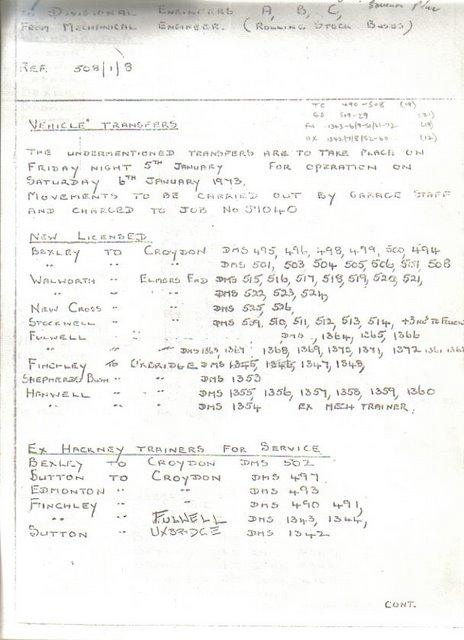 TO DIVISIONAL ENGINEERS A, B, C,
FROM MECHANICAL ENGINEER. (ROLLING STOCK BUSES)
REF. 508/1/8
TC 490-508 (19)
ED 509-29 (21)
VEHICLE TRANSFERS
THE UNDERMENTIONED TRANSFERS ARE TO TAKE PLACE ON
FRIDAY NIGHT 5TH JANUARY FOR OPERATION ON
SATURDAY 6TH JANUARY 1973.
MOVEMENTS TO BE CARRIED OUT BY GARAGE STAFF
AND CHARGED TO JOB NO 57040
NEW LICENSED
BEXLEY TO CROYDON DMS 495, 496, 498, 499, 500, 494
" " " DMS 501, 503 504, 505, 506, 507, 508
WALWORTH " ELMERS END DMS 515, 516, 517, 518, 519, 520, 521,
" " " DMS 522, 523, 524,
NEW CROSS " " DMS 525, 526,
STOCKWELL " " DMS 509, 510, 511, 512, 513, 514,
FULWELL DMS 1364, 1365, 1366
" DMS 1363, 1367 1368, 1369, 1370, 1371, 1372
FINCHLEY TO UXBRIDGE DMS 1345, 1346, 1347, 1348,
SHEPHERDS BUSH " " DMS 1353
HANWELL " " DMS 1355, 1356, 1357, 1358, 1359, 1360
" " " DMS 1354 EX MECH TRAINER.
EX HACKNEY TRAINERS FOR SERVICE
BEXLEY TO CROYDON DMS 502
SUTTON TO CROYDON DMS 497
EDMONTON " " DMS 493
FINCHLEY " " DMS 490 491,
" " FULWELL DMS 1343, 1344,
SUTTON " UXBRIDGE DMS 1342
CONT.